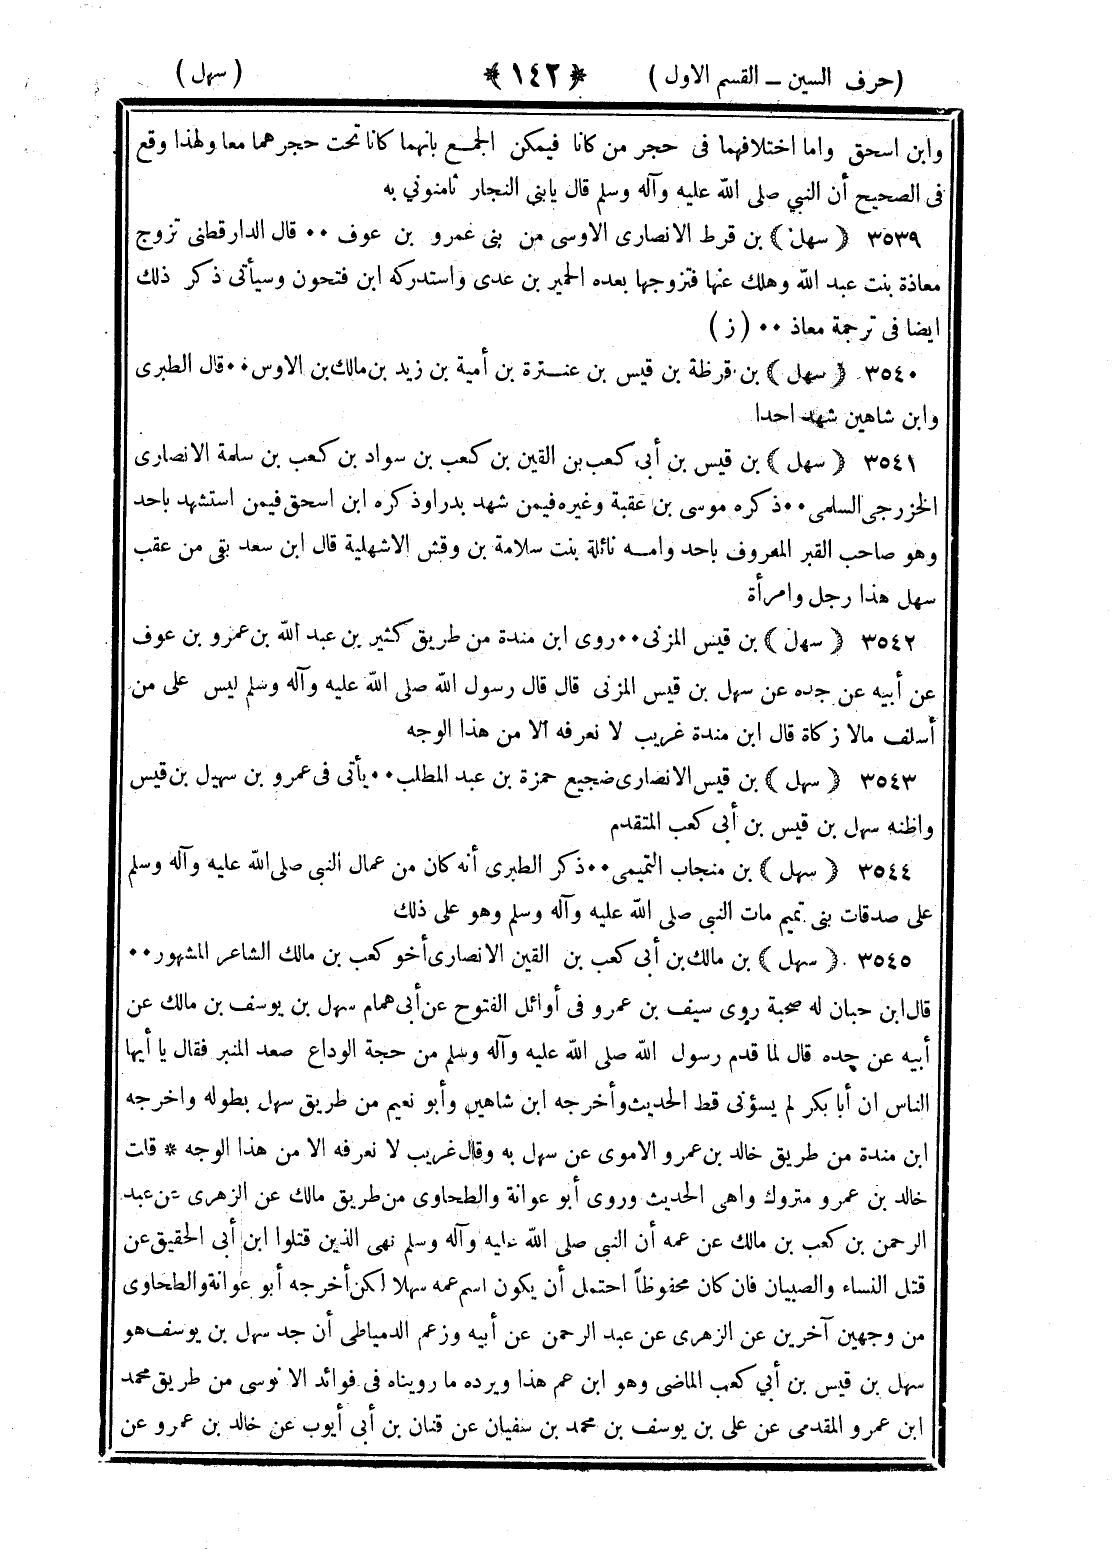 (حرف السين ــ القسم الاول) ﴿١٤٢﴾ (سهل)
وابن اسحق واما اختلافهما فى حجر من كانا فيمكن الجمع بانهما كانا تحت حجرهما معا ولهذا وقع
فى الصحيح أن النبي صلى الله عليه وآله وسلم قال يابني النجار ثامنوني به
٣٥٣٩ ﴿سهل﴾ بن قرط الانصارى الاوسى من بنى عمرو بن عوف ٠٠ قال الدارقطنى تزوج
معاذة بنت عبد الله وهلك عنها فتزوجها بعده الحمير بن عدى واستدركه ابن فتحون وسيأتى ذكر ذلك
ايضا فى ترجمة معاذ ٠٠ (ز)
٣٥٤٠ ﴿سهل﴾ بن قرظة بن قيس بن عنترة بن أمية بن زيد بن مالك بن الاوس ٠٠ قال الطبرى
وابن شاهين شهد احدا
٣٥٤١ ﴿سهل﴾ بن قيس بن أبى كعب بن القين بن كعب بن سواد بن كعب بن سلمة الانصارى
الخزرجى السلمى ٠٠ ذكره موسى بن عقبة وغيره فيمن شهد بدرا وذكره ابن اسحق فيمن استشهد باحد
وهو صاحب القبر المعروف باحد وامه نائلة بنت سلامة بن وقش الاشهلية قال ابن سعد بقى من عقب
سهل هذا رجل وامرأة
٣٥٤٢ ﴿سهل﴾ بن قيس المزنى ٠٠ روى ابن مندة من طريق كثير بن عبد الله بن عمرو بن عوف
عن أبيه عن جده عن سهل بن قيس المزنى قال قال رسول الله صلى الله عليه وآله وسلم ليس على من
أسلف مالا زكاة قال ابن مندة غريب لا نعرفه الا من هذا الوجه
٣٥٤٣ ﴿سهل﴾ بن قيس الانصارى ضجيع حمزة بن عبد المطلب ٠٠ يأتى فى عمرو بن سهيل بن قيس
واظنه سهل بن قيس بن أبى كعب المتقدم
٣٥٤٤ ﴿سهل﴾ بن منجاب التميمى ٠٠ ذكر الطبرى أنه كان من عمال النبي صلى الله عليه وآله وسلم
على صدقات بنى تميم مات النبي صلى الله عليه وآله وسلم وهو على ذلك
٣٥٤٥ ﴿سهل﴾ بن مالك بن أبى كعب بن القين الانصارى أخو كعب بن مالك الشاعر المشهور ٠٠
قال ابن حبان له صحبة روى سيف بن عمرو فى أوائل الفتوح عن أبى همام سهل بن يوسف بن مالك عن
أبيه عن جده قال لما قدم رسول الله صلى الله عليه وآله وسلم من حجة الوداع صعد المنبر فقال يا أيها
الناس ان أبا بكر لم يسؤنى قط الحديث وأخرجه ابن شاهين وأبو نعيم من طريق سهل بطوله واخرجه
ابن مندة من طريق خالد بن عمرو الاموى عن سهل به وقال غريب لا نعرفه الا من هذا الوجه * قلت
خالد بن عمرو متروك واهى الحديث وروى أبو عوانة والطحاوى من طريق مالك عن الزهرى عن عبد
الرحمن بن كعب بن مالك عن عمه أن النبي صلى الله عليه وآله وسلم نهى الذين قتلوا ابن أبى الحقيق عن
قتل النساء والصبيان فان كان محفوظاً احتمل أن يكون اسم عمه سهلا لكن أخرجه أبو عوانة والطحاوى
من وجهين آخرين عن الزهرى عن عبد الرحمن عن أبيه وزعم الدمياطى أن جد سهل بن يوسف هو
سهل بن قيس بن أبي كعب الماضى وهو ابن عم هذا ويرده ما رويناه فى فوائد الانوسى من طريق محمد
ابن عمرو المقدمى عن على بن يوسف بن محمد بن سفيان عن قنان بن أبى أيوب عن خالد بن عمرو عن